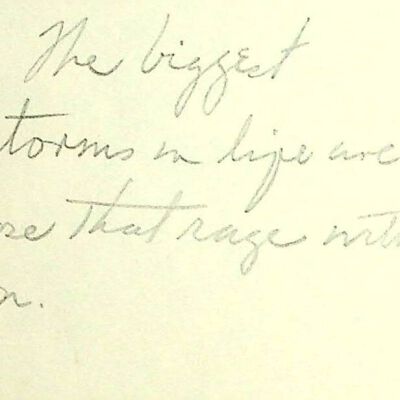 The biggest
torms in life are
ose that rage with
n.